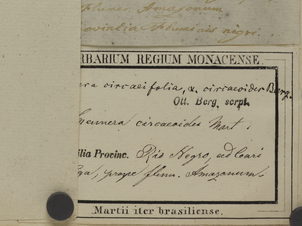 flumen Amazonum
fluminis nigri.
RBARIUM REGIUM MONACENSE.
circaeifolia, α, circaeoides Berg.
Ott. Berg. scrpt.
circaeoides Mart.
ilia Provinc. Rio Negro, ad Coari
prope flum. Amazonum.
Martii iter brasiliense.